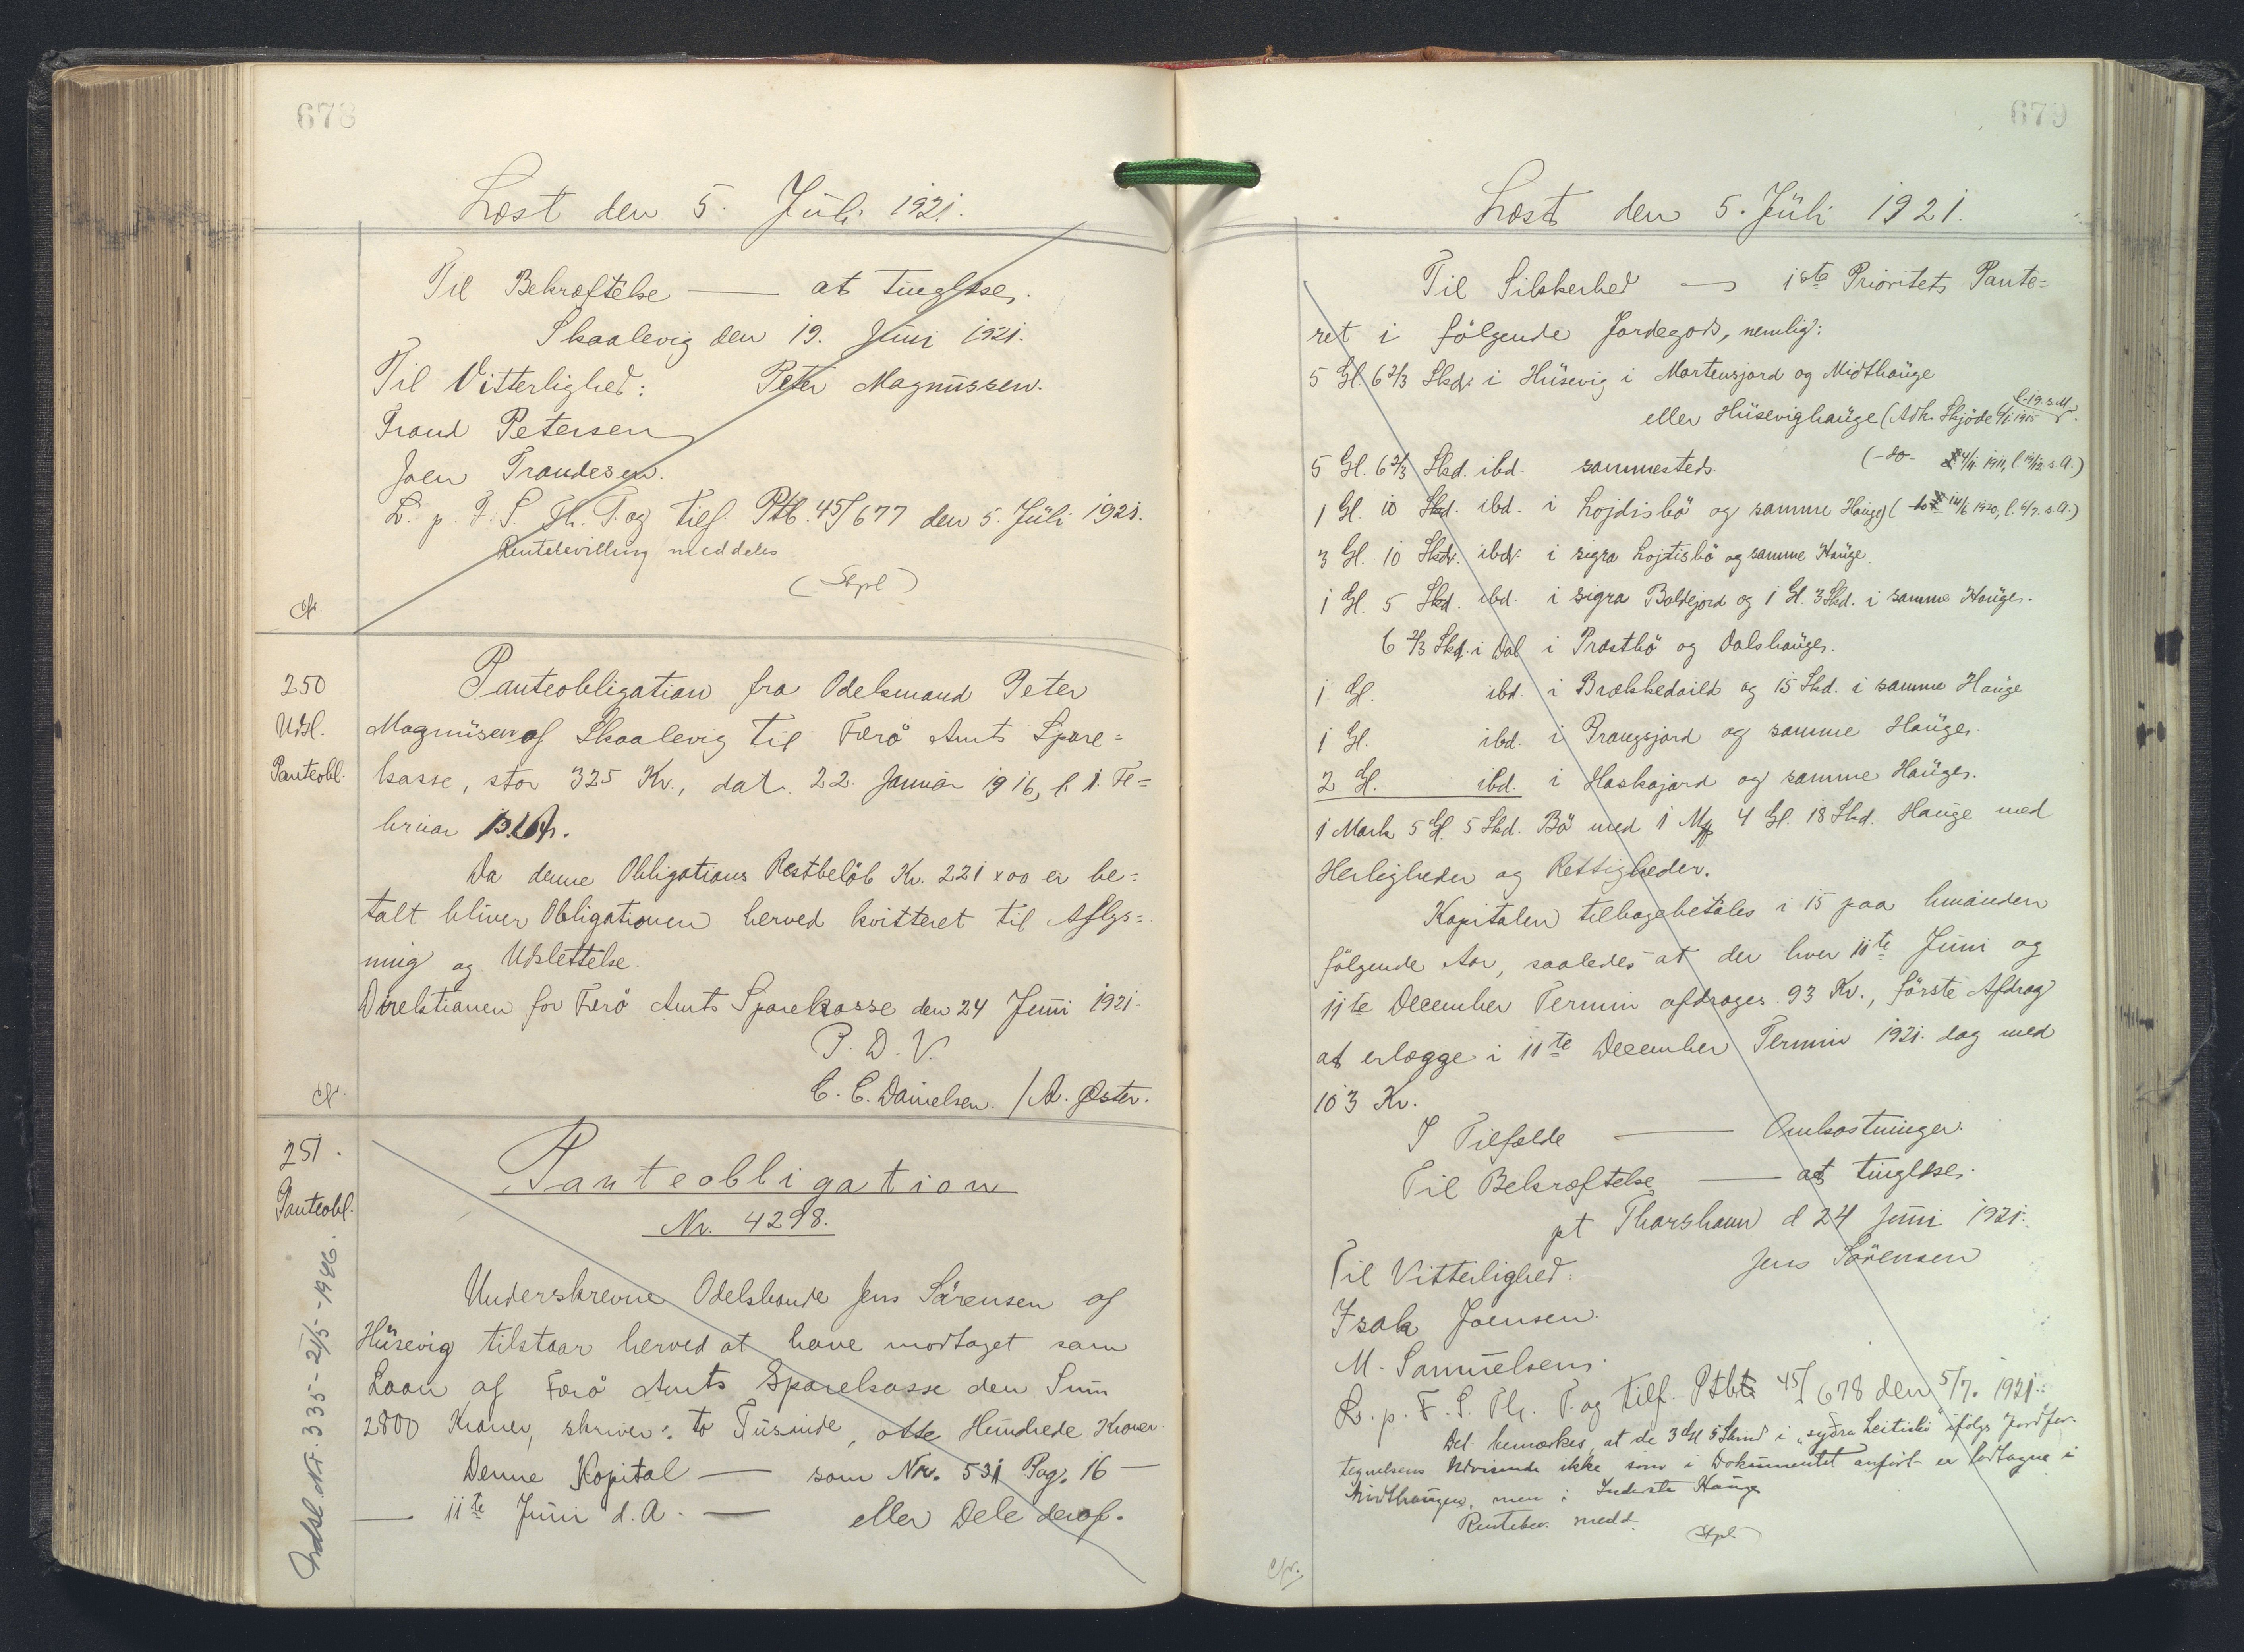 678
Læst den 5. Juli 1921.
Til Bekræftelse — at tinglæses.
Skaalevig den 19. Juni 1921.
Til Vitterlighed: Peter Magnussen.
Trond Petersen
Joen Trondesen.
L. p. F. S. Th. T. og tilf. Ptb. 45/677 den 5. Juli 1921.
Rentebevilling meddeles
(Stpl)
Cfr.
250
Udsl.
Panteobl.
Panteobligation fra Odelsmand Peter
Magnusen af Skaalevig til Færö Amts Spare=
kasse, stor 325 Kr., dat. 22. Januar 1916, l. 1. Fe=
bruar
Da denne Obligations Restbelöb Kr. 221 x 00 er be=
talt bliver Obligationen herved kvitteret til Aflys=
ning og Udslettelse.
Direktionen for Færö Amts Sparekasse den 24 Juni 1921.
P. D. V.
C. C. Danielsen. / A. Öster.
Cfr.
251.
Panteobl.
Udsl. Nr. 335 - 21/5 - 1946.
Panteobligation
Nr. 4298.
Underskrevne Odelsbonde Jens Sörensen af
Húsevig tilstaar herved at have modtaget som
Laan af Færö Amts Sparekasse den Sum
2800 Kroner, skriver: to Tusinde, otte Hundrede Kroner
Denne Kapital — som Nr. 531 Pag. 16 —
— 11te Juni d. A. — eller Dele deraf.
679
Læst den 5. Juli 1921.
Til Sikkerhed — 1ste Prioritets Pante=
ret i fölgende Jordegods, nemlig:
5 Gl. 6 2/3 Skd. i Húsevig i Mortensjord og Midthauge
eller Húsevighauge (Adk. Skjöde 6/1 1915 l. 19. s. M.)
5 Gl. 6 2/3 Skd. ibd. sammesteds. (-do- 24/11 1911, l. 19/12 s. A.)
1 Gl. 10 Skd. ibd. i Lojdisbö og samme Hauge (- do - 14/6 1920, l. 6/7. s. A.)
3 Gl. 10 Skd. ibd. i sigra Lojtisbö og samme Hauge
1 Gl. 5 Skd. ibd. i sigra Baldejord og 1 Gl. 3 Skd. i samme Hauge.
6 2/3 Skd. i Dal i Præstbö og Dalshauge.
1 Gl. ibd. i Brekkedaild og 15 Skd. i samme Hauge
1 Gl. ibd. i Prangsjord og samme Hauge.
2 Gl. ibd. i Haskajord og samme Hauge.
1 Mark 5 Gl. 5 Skd. Bö med 1 Mk 4 Gl. 18 Skd. Hauge med
Herligheder og Rettigheder.
Kapitalen tilbagebetales i 15 paa hinanden
fölgende Aar, saaledes at der hver 11te Juni og
11te December Termin afdrages 93 Kr., förste Afdrag
at erlægge i 11te December Termin 1921. dog med
103 Kr.
I Tilfælde — Omkostninger.
Til Bekræftelse — at tinglæses.
pt Thorshavn d 24 Juni 1921.
Til Vitterlighed: Jens Sörensen
Isak Joensen.
M. Samuelsen.
L. p. F. S. Th. T. og tilf. Ptb. 45/678 den 5/7. 1921.
Det bemærkes, at de 3 Gl 5 Skind i "sydra Leitisbö" ifölge Jordfor-
tegnelsens Udvisende ikke som i Dokumentet anfört er lodtagne i
Midthaugen, men i Inderste Hauge
Rentebev. medd.
Stpl.
Cfr.